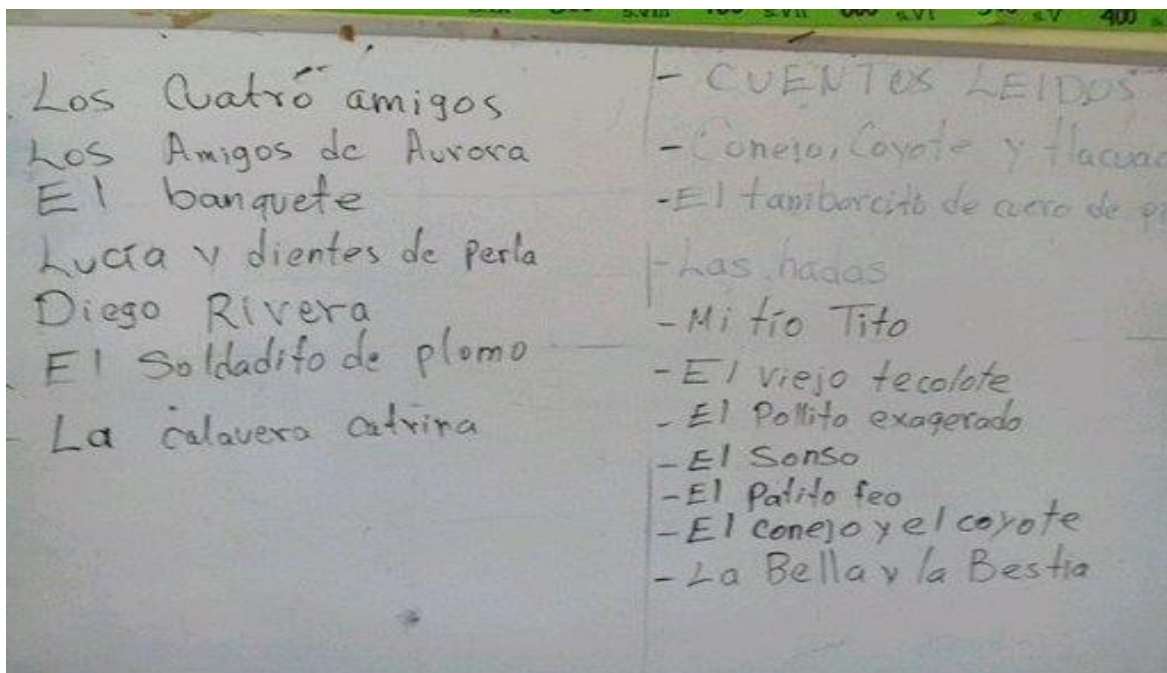 s.VIII 700 s.VII 600 s.VI 500 s.V 400
Los Cuatro amigos
Los Amigos de Aurora
El banquete
Lucía y dientes de perla
Diego Rivera
El Soldadito de plomo
- La calavera catrina
- CUENTOS LEIDOS
- Conejo, Coyote y tlacuac
- El tamborcito de cuero de
- Las hadas
- Mi tío Tito
- El viejo tecolote
- El Pollito exagerado
- El Sonso
- El Patito feo
- El conejo y el coyote
- La Bella y la Bestia